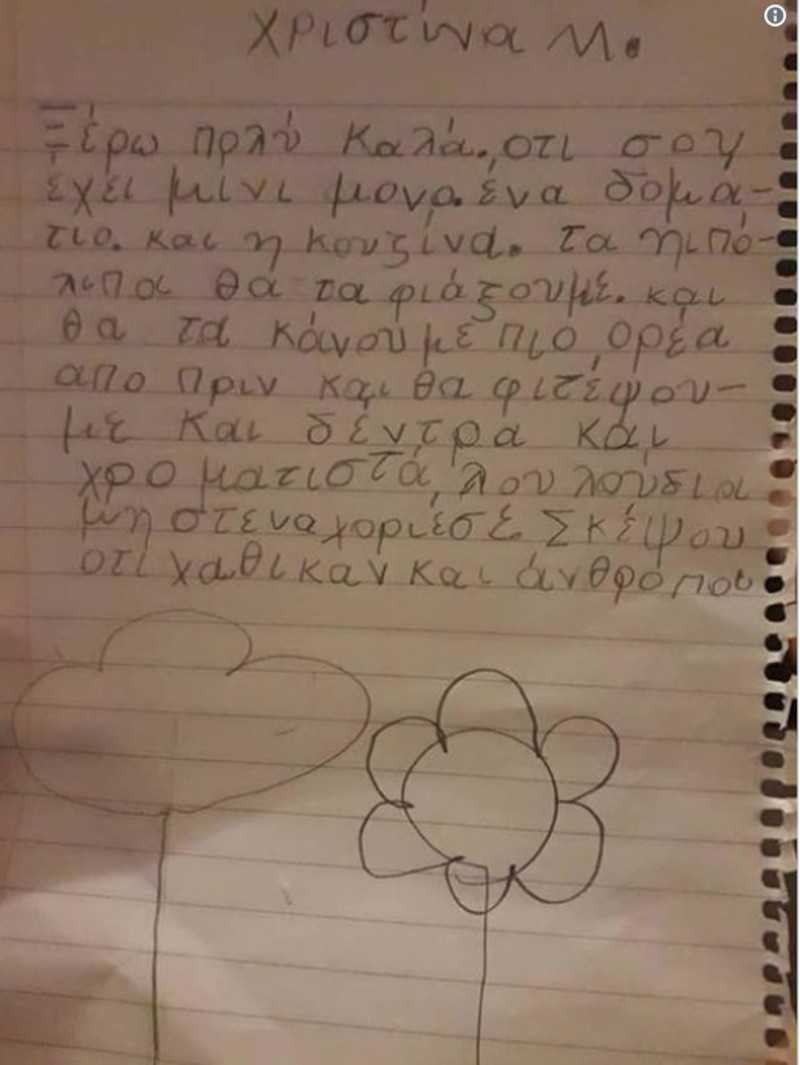 Χριστίνα Μ.
Ξέρω πολύ καλά., οτι σου
έχει μίνι μονο. ένα δομά-
τιο. και η κουζίνα. τα ηιπό-
λιπα θα τα φιάξουμε. και
θα τα κάνουμε πιο, ορέα
απο πριν και θα φιτέψου-
με και δέντρα και
χρο ματιστά, λου λούδια
μη στεναχοριέσε. Σκέψου
οτι χαθικαν και άνθρόπου